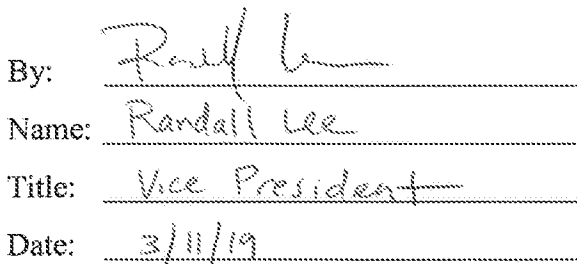 By: Randall Lee
Name: Randall Lee
Title: Vice President
Date: 3/11/19